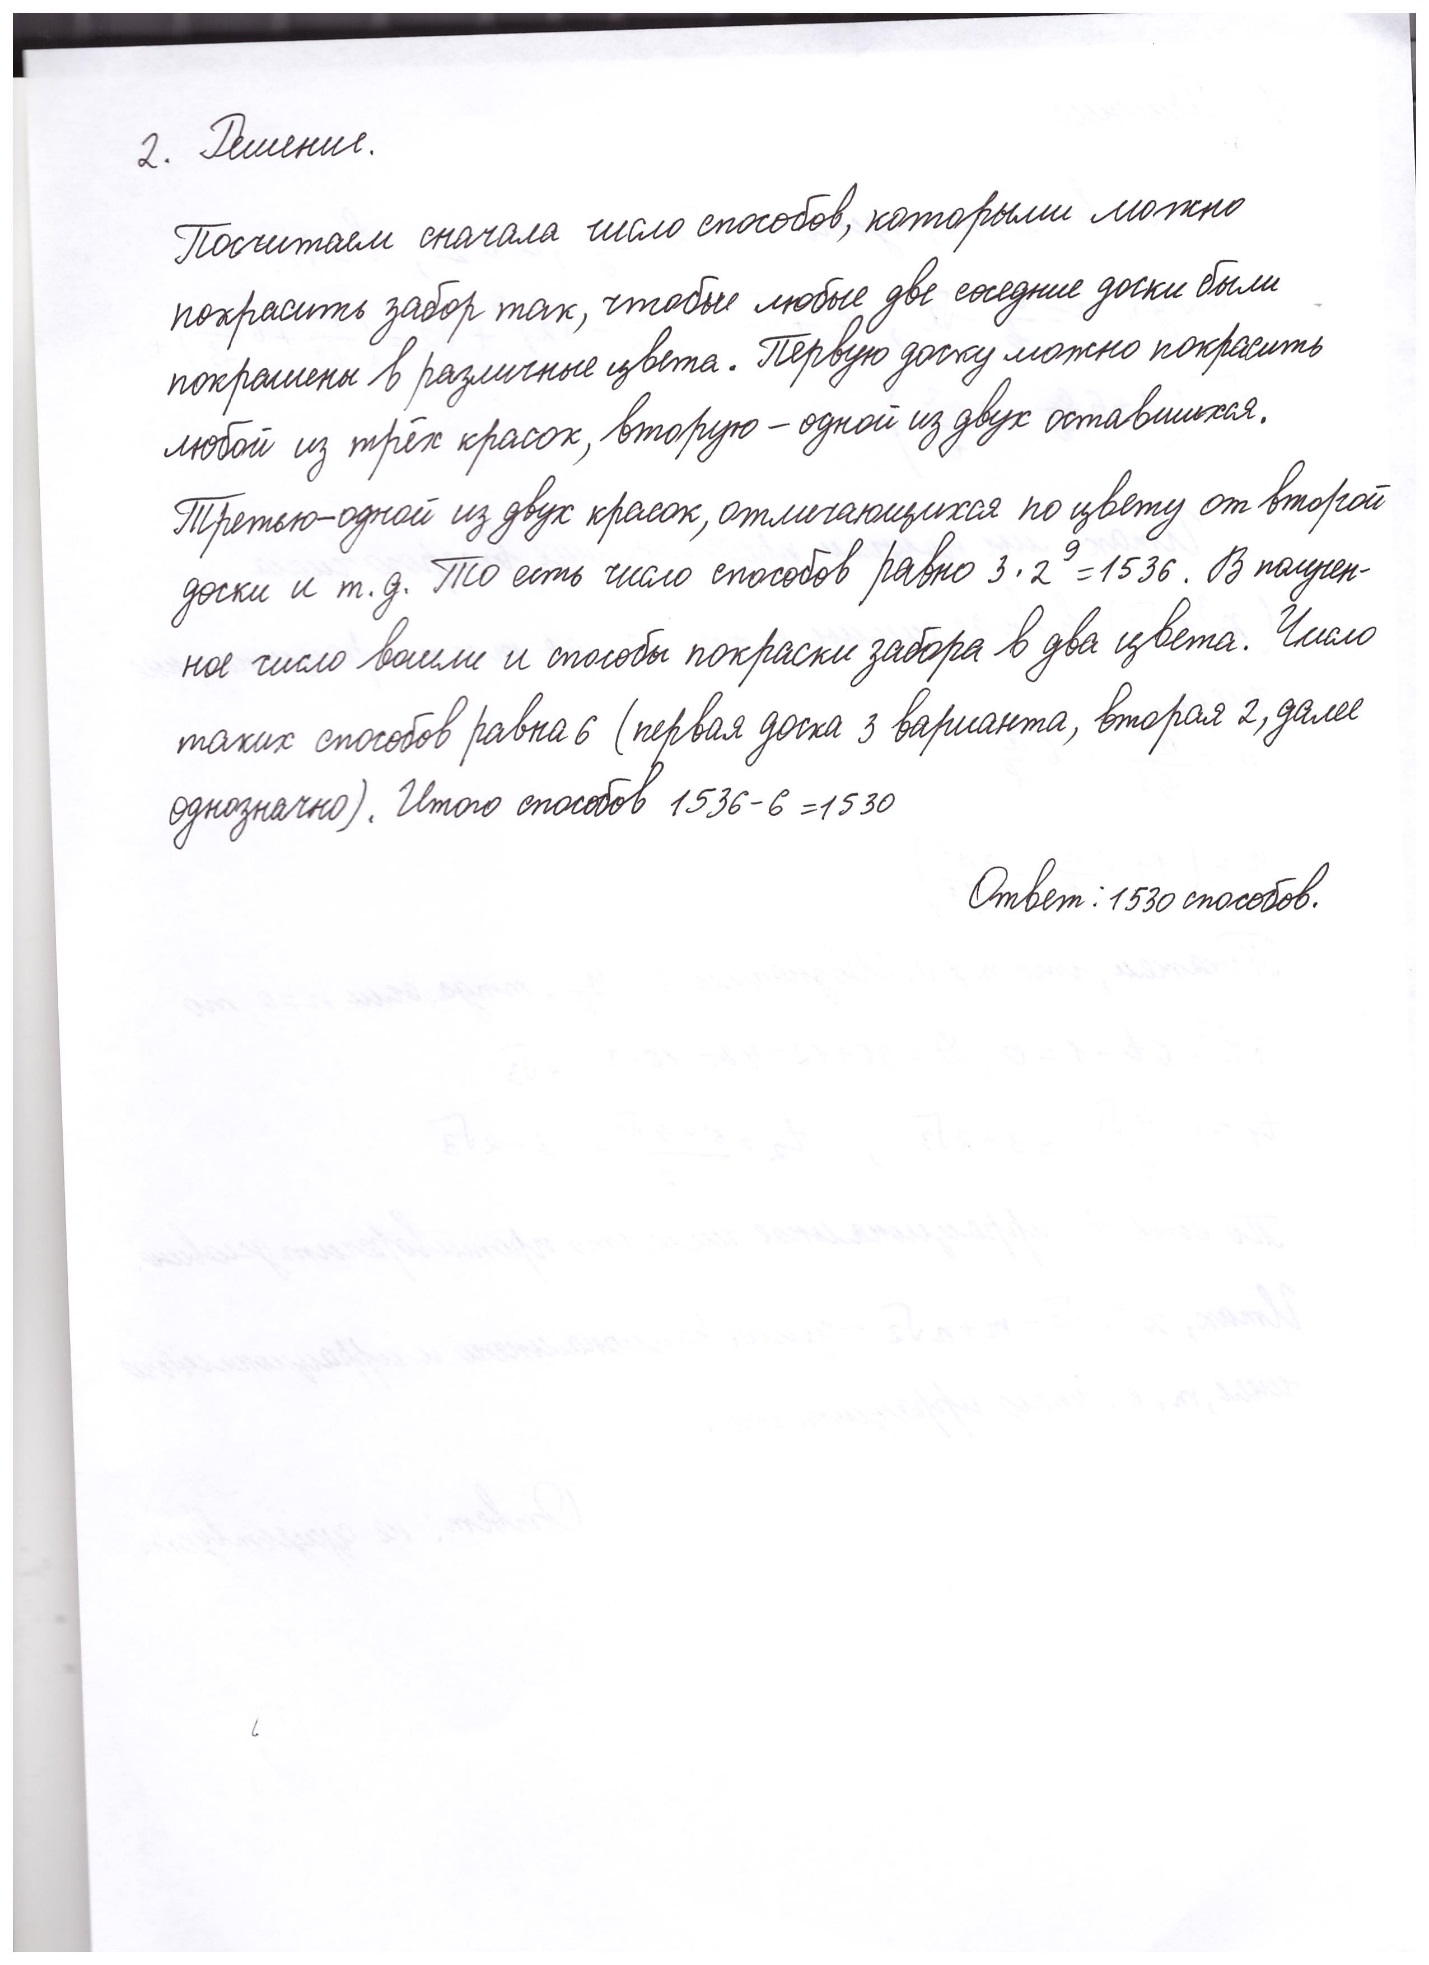 2. Решение.
Посчитаем сначала число способов, которыми можно
покрасить забор так, чтобы любые две соседние доски были
покрашены в различные цвета. Первую доску можно покрасить
любой из трёх красок, вторую – одной из двух оставшихся.
Третью – одной из двух красок, отличающихся по цвету от второй
доски и т.д. То есть число способов равно 3 · 2⁹ = 1536. В получен-
ное число вошли и способы покраски забора в два цвета. Число
таких способов равна 6 (первая доска 3 варианта, вторая 2, далее
однозначно). Итого способов 1536 - 6 = 1530
Ответ: 1530 способов.